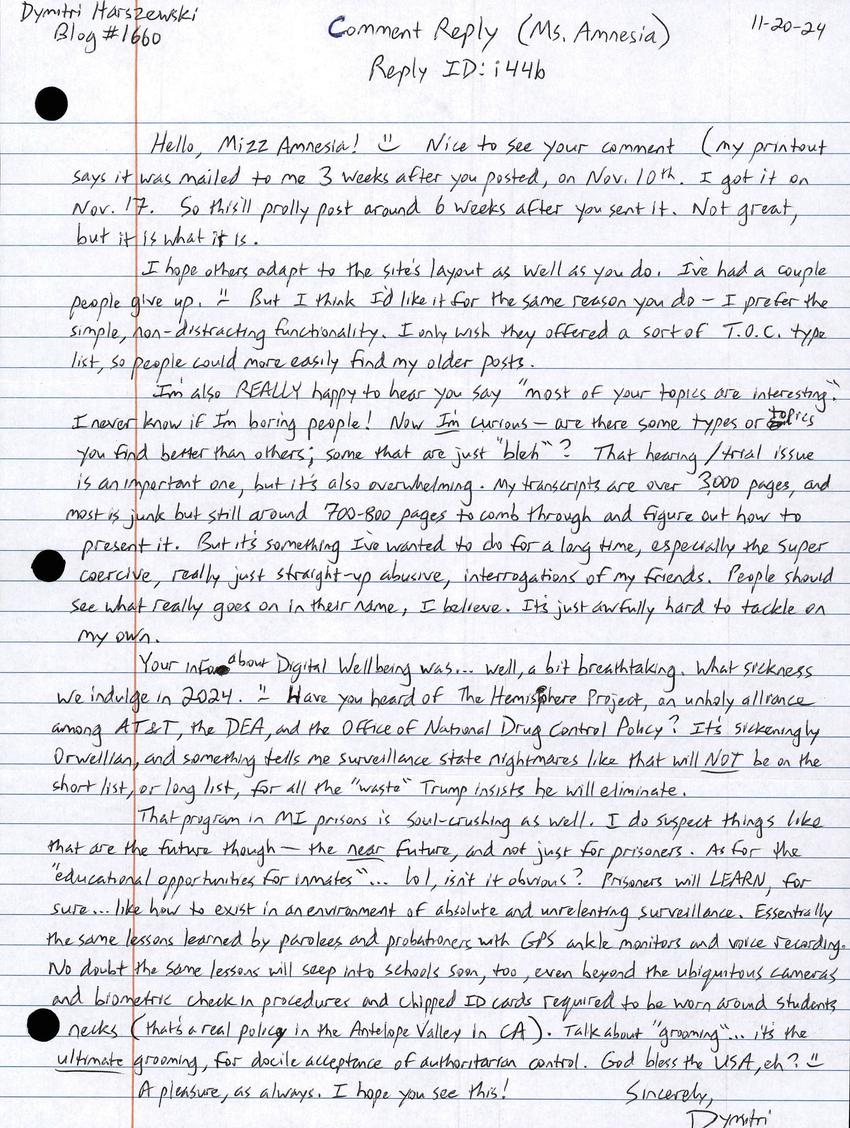 Dymitri Harszewski
Blog #1660
Comment Reply (Ms. Amnesia)
11-20-24
Reply ID: i44b
Hello, Mizz Amnesia! Nice to see your comment (my printout
says it was mailed to me 3 weeks after you posted, on Nov. 10th. I got it on
Nov. 17. So this'll prolly post around 6 weeks after you sent it. Not great,
but it is what it is.
I hope others adapt to the site's layout as well as you do. I've had a couple
people give up. But I think I'd like it for the same reason you do – I prefer the
simple, non-distracting functionality. I only wish they offered a sort of T.O.C. type
list, so people could more easily find my older posts.
I'm also REALLY happy to hear you say "most of your topics are interesting."
I never know if I'm boring people! Now I'm curious – are there some types or topics
you find better than others; some that are just "bleh"? That hearing/trial issue
is an important one, but it's also overwhelming. My transcripts are over 3,000 pages, and
most is junk but still around 700-800 pages to comb through and figure out how to
present it. But it's something I've wanted to do for a long time, especially the super
coercive, really just straight-up abusive, interrogations of my friends. People should
see what really goes on in their name, I believe. It's just awfully hard to tackle on
my own.
Your info about Digital Wellbeing was... well, a bit breathtaking. What sickness
we indulge in 2024. Have you heard of The Hemisphere Project, an unholy alliance
among AT&T, the DEA, and the Office of National Drug Control Policy? It's sickeningly
Orwellian, and something tells me surveillance state nightmares like that will NOT be on the
short list, or long list, for all the "waste" Trump insists he will eliminate.
That program in MI prisons is soul-crushing as well. I do suspect things like
that are the future though – the near future, and not just for prisoners. As for the
"educational opportunities for inmates"... lol, isn't it obvious? Prisoners will LEARN, for
sure... like how to exist in an environment of absolute and unrelenting surveillance. Essentially
the same lessons learned by parolees and probationers with GPS ankle monitors and voice recording.
No doubt the same lessons will seep into schools soon, too, even beyond the ubiquitous cameras
and biometric check in procedures and chipped ID cards required to be worn around students
necks (that's a real policy in the Antelope Valley in CA). Talk about "grooming"... it's the
ultimate grooming, for docile acceptance of authoritarian control. God bless the USA, eh?
A pleasure, as always. I hope you see this!
Sincerely,
Dymitri